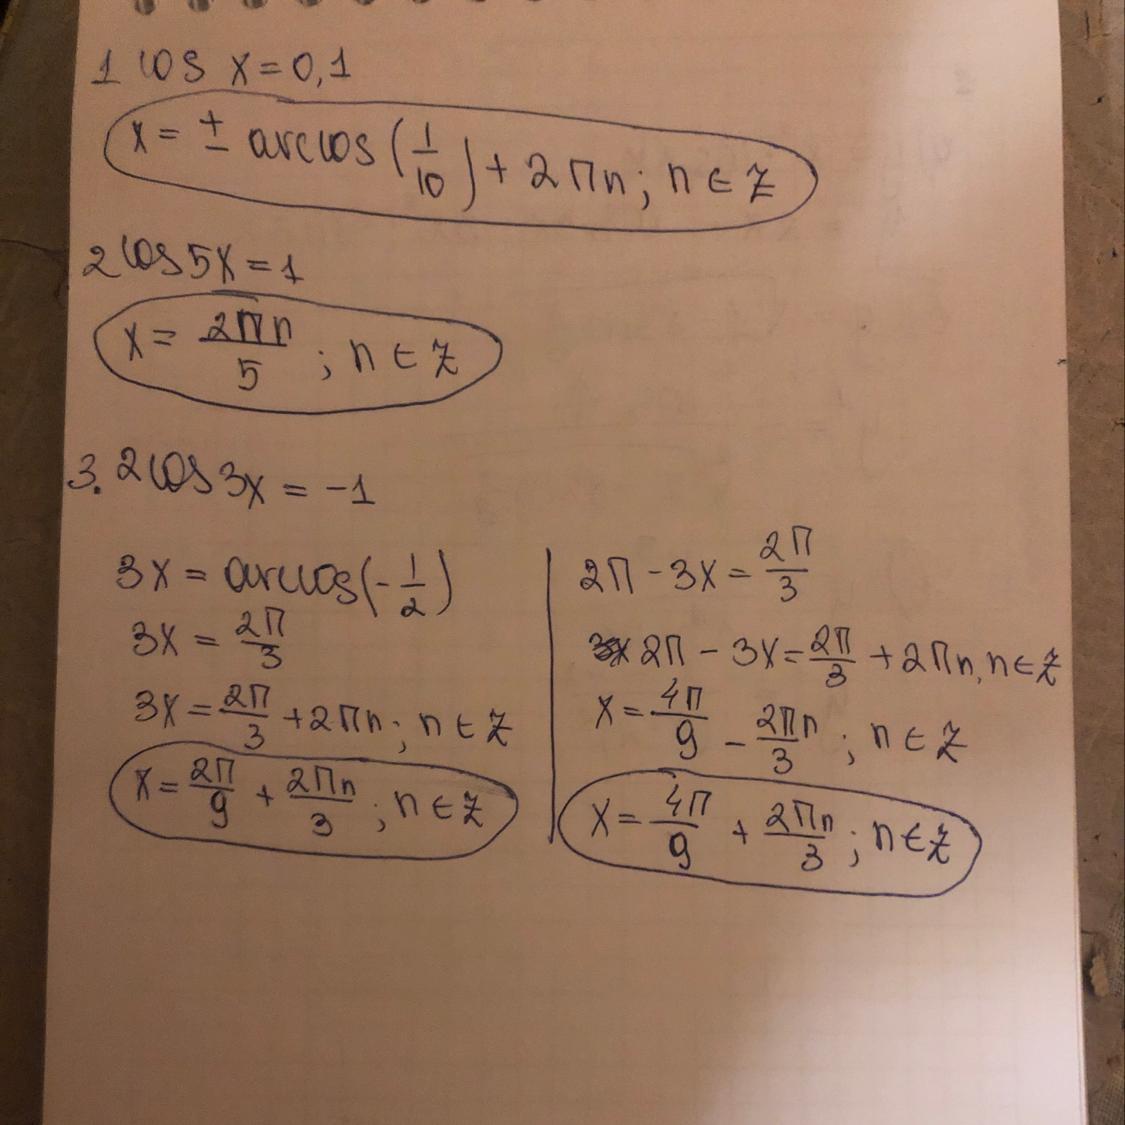 1 cos x = 0,1
x = ± arccos(1/10) + 2πn; n ∈ Z
2 cos 5x = 1
x = 2πn/5 ; n ∈ Z
3. 2cos 3x = -1
3x = arccos(-1/2)
3x = 2π/3
3x = 2π/3 + 2πn; n ∈ Z
x = 2π/9 + 2πn/3 ; n ∈ Z
2π - 3x = 2π/3
2π - 3x = 2π/3 + 2πn, n ∈ Z
x = 4π/9 - 2πn/3 ; n ∈ Z
x = 4π/9 + 2πn/3 ; n ∈ Z